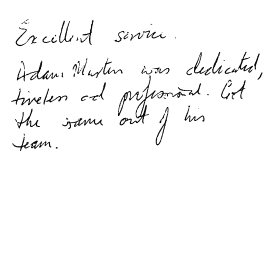 Excellent service.
Adam Masters was dedicated,
tireless and professional. Got
the same out of his
team.